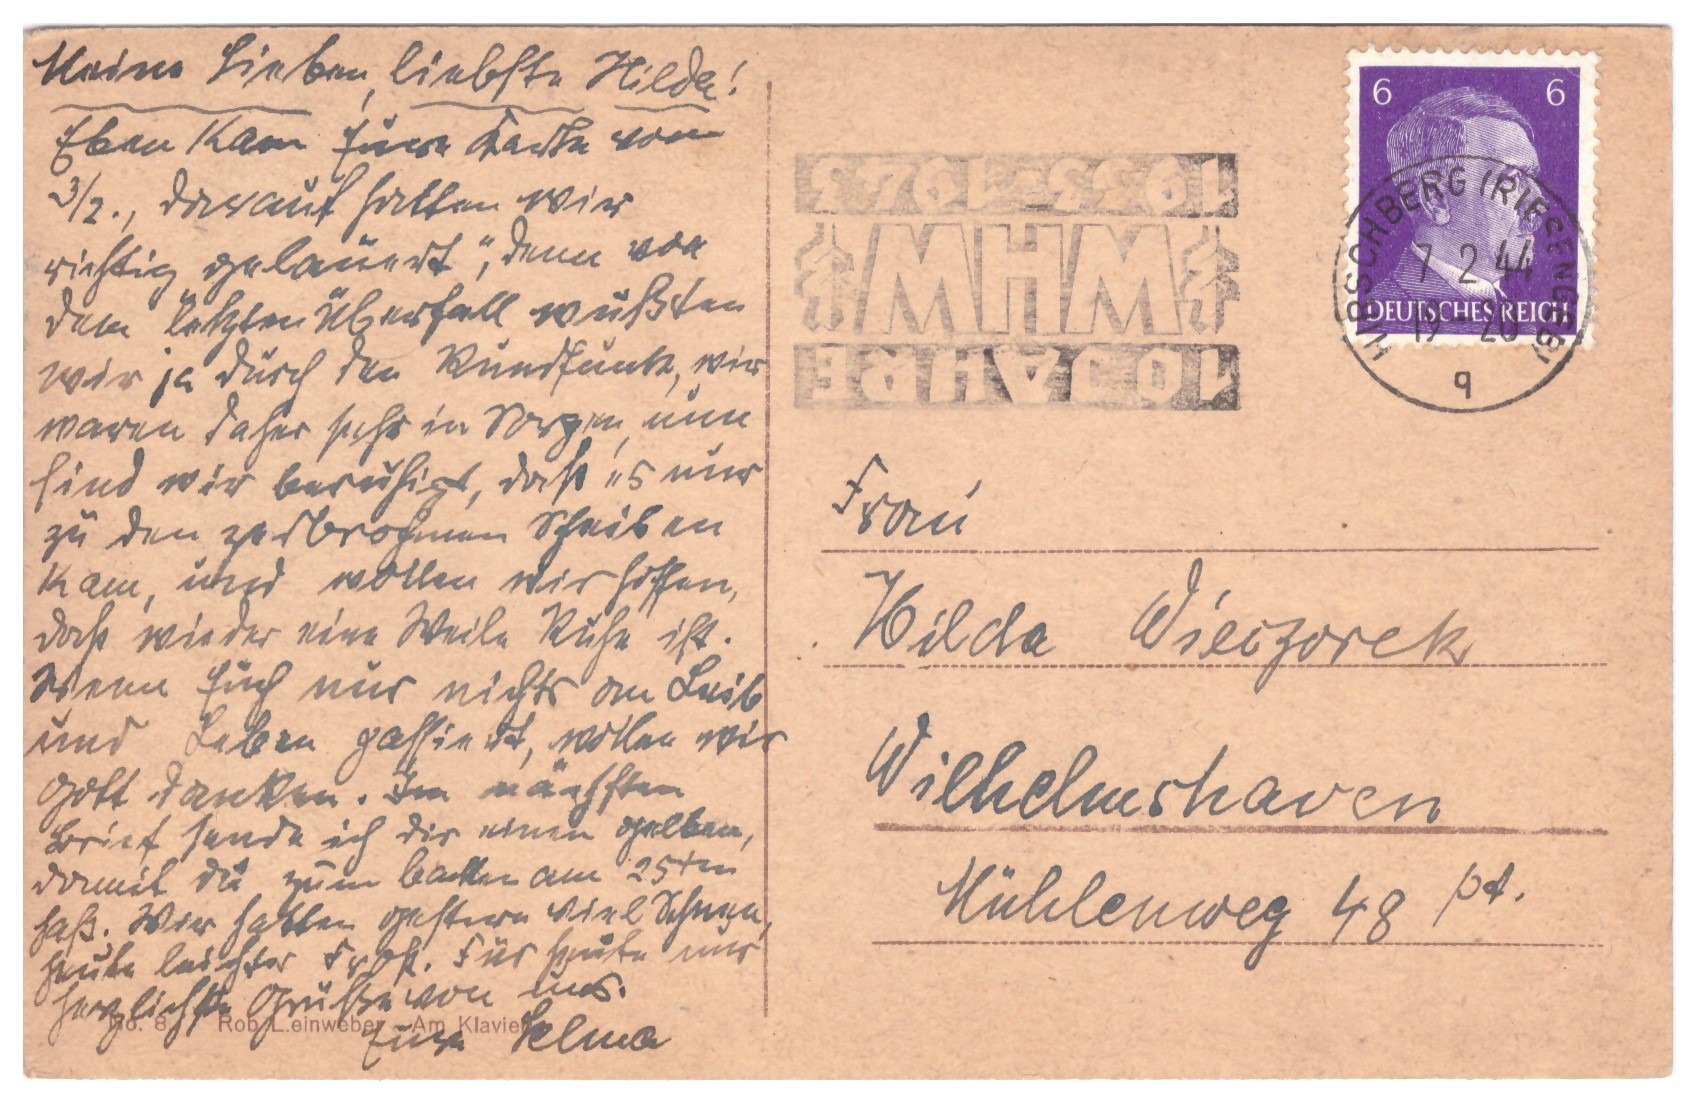 Meine Lieben, liebste Hilda!
Eben kam Eure Karte vom
3/2., darauf hatten wir
richtig "gelauert", denn von
dem letzten Überfall wußten
wir ja durch den Rundfunk, wir
waren daher sehr in Sorgen, nun
sind wir beruhigt, daß es nur
zu den zerbrochnen Scheiben
kam, und wollen wir hoffen,
daß wieder eine Weile Ruhe ist.
Wenn Euch nur nichts an Leib
und Leben passiert, wollen wir
Gott danken. Im nächsten
Brief sende ich dir einen gelben,
damit du zum backen am 25ten
hast. Wir hatten gestern viel Schnee,
heute leichter Frost. Für heute nur
herzlichste Grüße von uns.
Eure Selma
No. 8 Rob. Leinweber Am Klavier
1933-1943
WHW
10 JAHRE
6 6
DEUTSCHES REICH
HIRSCHBERG (RIESENGEB)
7 2 44
19 - 20
q
Frau
Hilda Wieczorek
Wilhelmshaven
Mühlenweg 48 pt.